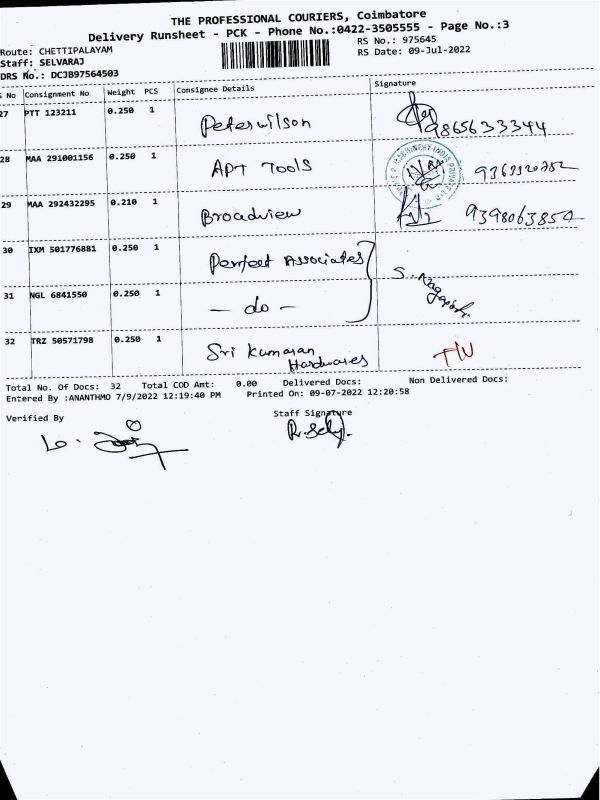 THE PROFESSIONAL COURIERS, Coimbatore
Delivery Runsheet - PCK - Phone No.:0422-3505555 - Page No.:3
Route: CHETTIPALAYAM
RS No.: 975645
Staff: SELVARAJ
RS Date: 09-Jul-2022
DRS No.: DCJB97564503
S No Consignment No Weight PCS Consignee Details Signature
27 PTT 123211 0.250 1 Peterwilson 9865633344
28 MAA 291001156 0.250 1 APT TOOLS
29 MAA 292432295 0.210 1 Broadview 9398063854
30 IXM 501776881 0.250 1 Perfect Associates
31 NGL 6841550 0.250 1 - do -
32 TRZ 50571798 0.250 1 Sri Kumaran
Hardwares
Total No. Of Docs: 32 Total COD Amt: 0.00 Delivered Docs: Non Delivered Docs:
Entered By :ANANTHMO 7/9/2022 12:19:40 PM Printed On: 09-07-2022 12:20:58
Verified By Staff Signature